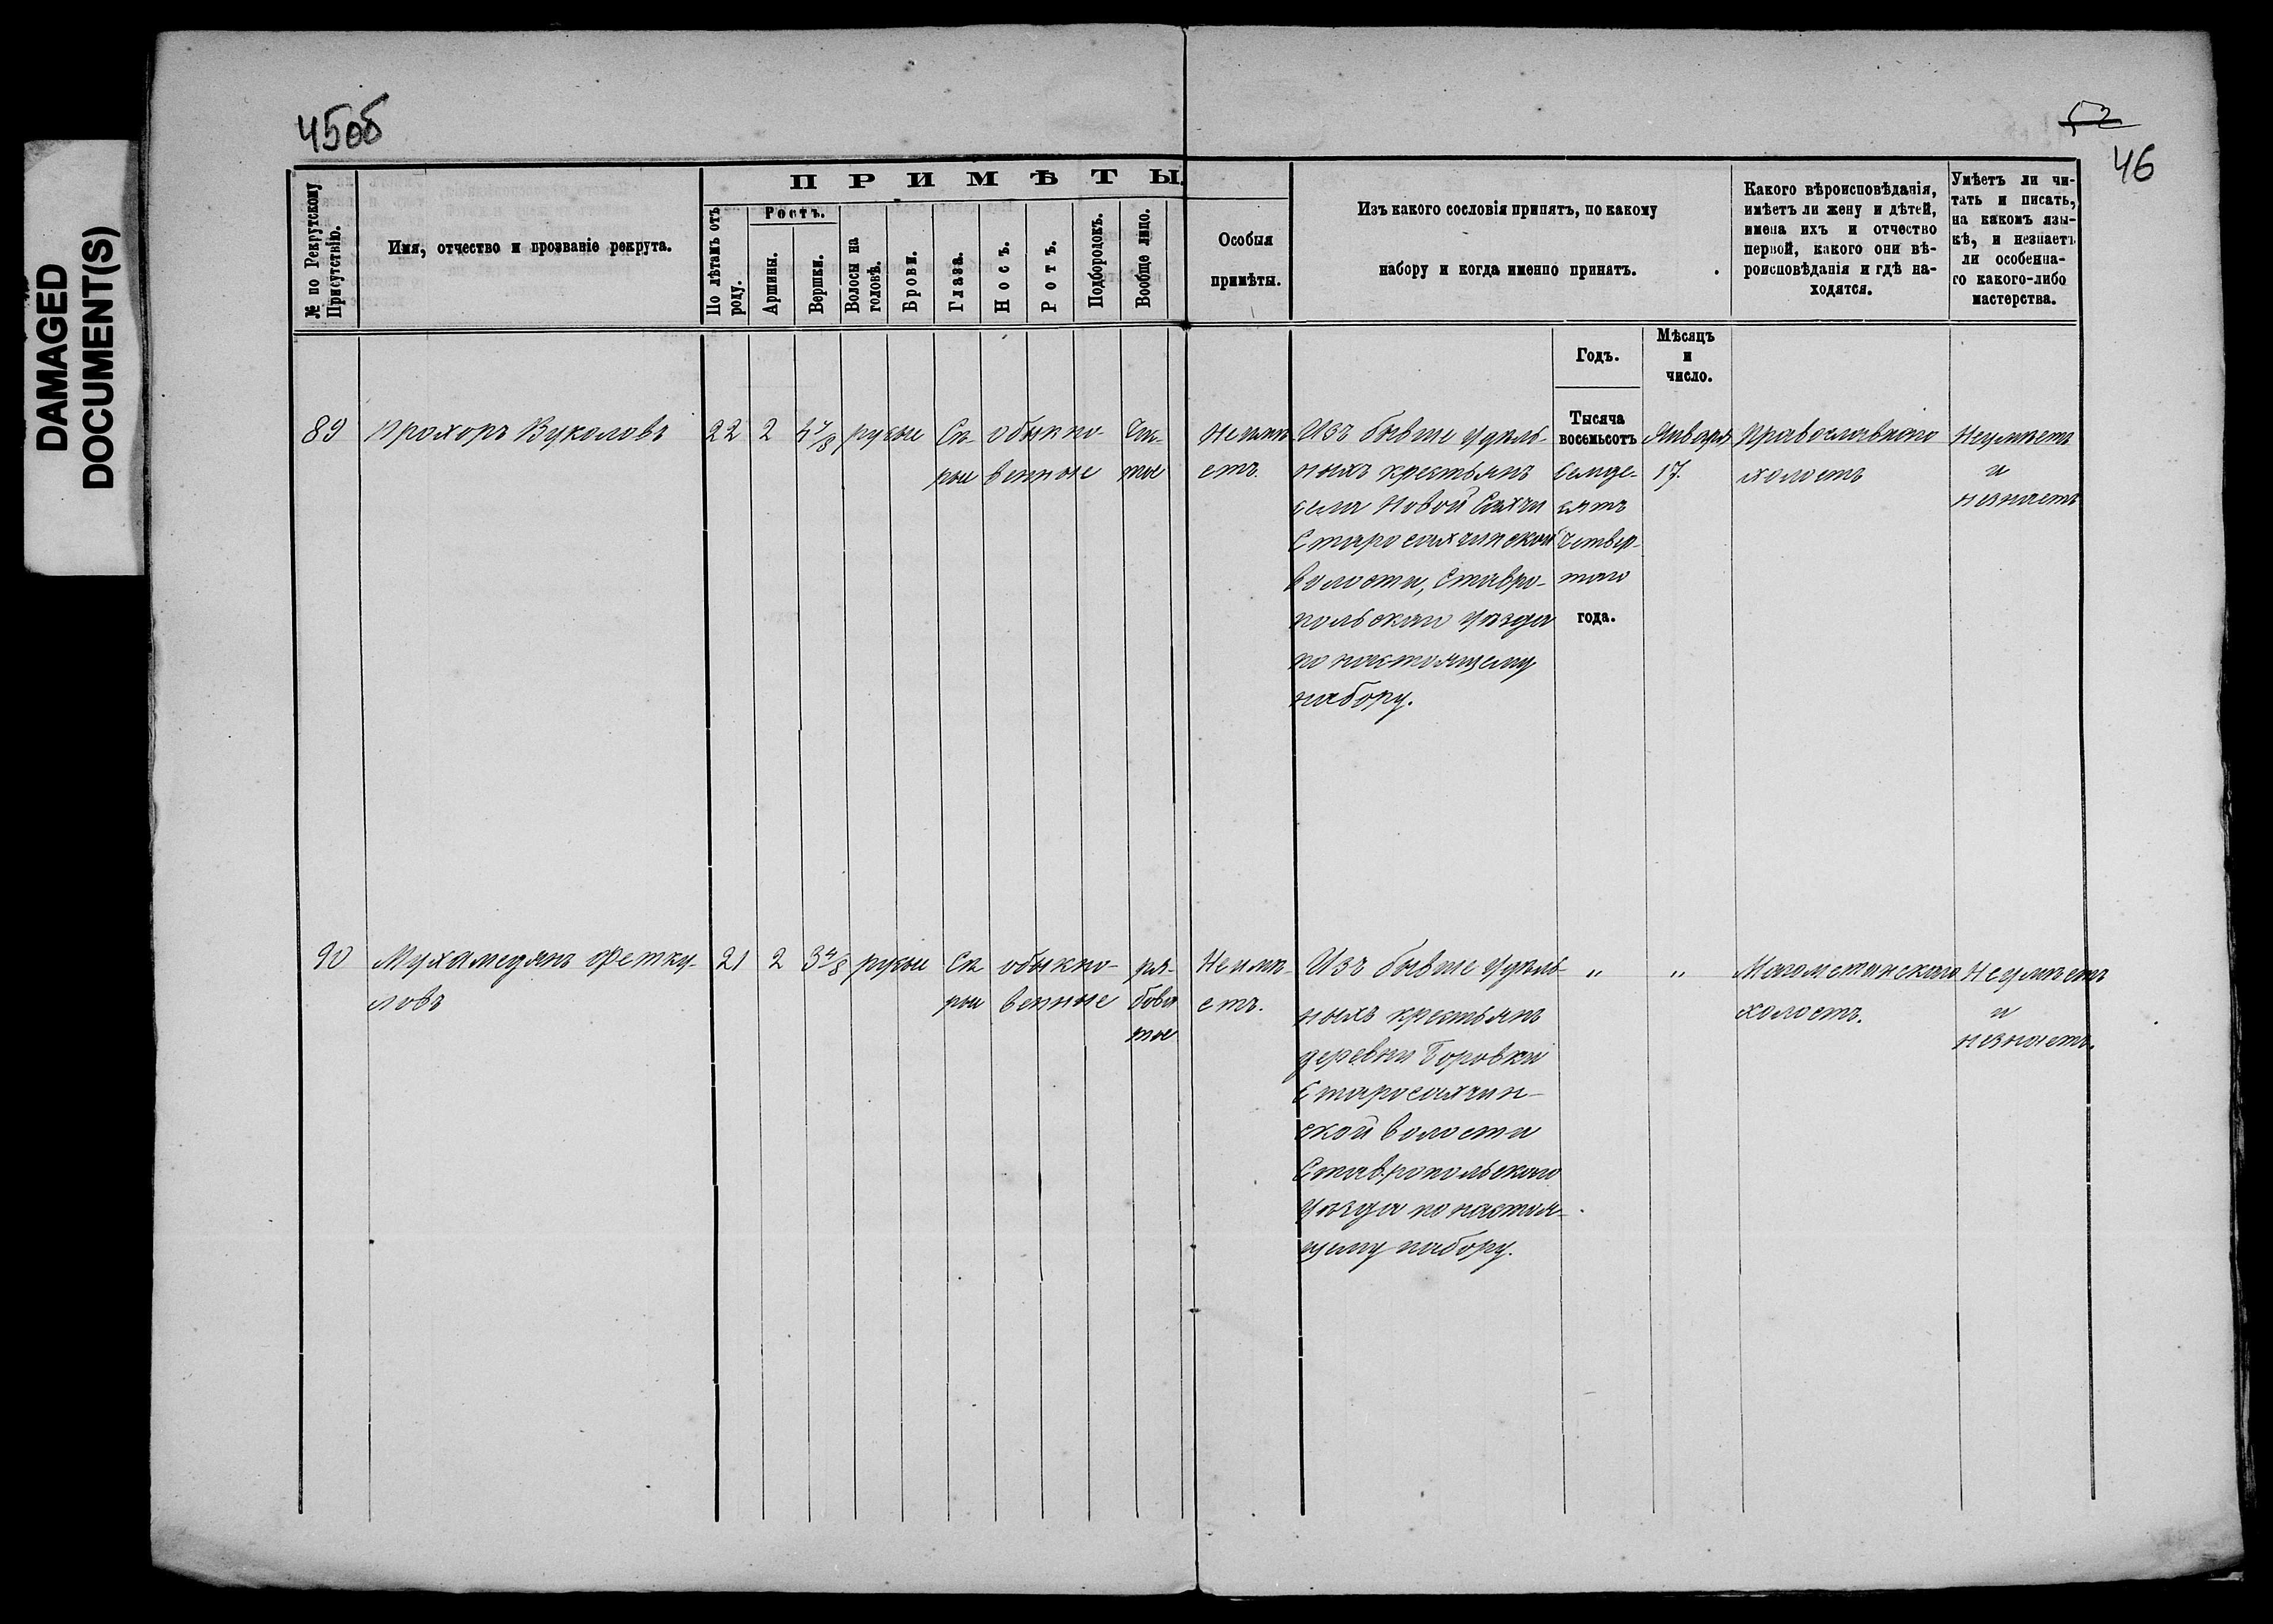 DAMAGED
DOCUMENT(S)
45об
52
46
ПРИМѢТЫ.
№ по Рекрутскому
Присутствію.
Имя, отчество и прозваніе рекрута.
По лѣтамъ отъ
роду.
Ростъ.
Аршины.
Вершки.
Волосы на
головѣ.
Брови.
Глаза.
Носъ.
Ротъ.
Подбородокъ.
Вообще лицо.
Особыя
примѣты.
Изъ какого сословія принятъ, по какому
набору и когда именно принятъ.
Какого вѣроисповѣданія,
имѣетъ ли жену и дѣтей,
имена ихъ и отчество
первой, какого они вѣ-
роисповѣданія и гдѣ на-
ходятся.
Умѣетъ ли чи-
тать и писать,
на какомъ язы-
кѣ, и незнаетъ
ли особенна-
го какого-либо
мастерства.
Годъ.
Мѣсяцъ
и
число.
89
Прохоръ Вуколовъ
22
2
4/8
русые
Сѣ-
рые
обыкно-
венные
Чис-
тое
Неимѣ-
етъ.
Изъ бывше удѣль-
ныхъ крестьянъ
села Новой Сахчи
Старосахчинской
волости, Ставро-
польскаго уѣзда
по настоящему
набору.
Тысяча
восемьсотъ
Семде-
сятъ
Четвер-
таго
года.
Января
17.
Православнаго
холостъ
Неумѣетъ
и
незнаетъ
90
Мухамедянъ Фетку-
ловъ
21
2
3 4/8
русые
Сѣ
рые
обыкно-
венные
ря-
бова
тое
Неимѣ-
етъ.
Изъ бывше удѣль-
ныхъ крестьянъ
деревни Боровки
Старосахчин-
ской волости
Ставропольскаго
уѣзда по настоя-
щему набору.
"
"
Магометанскаго
холостъ.
Неумѣетъ
и
незнаетъ.